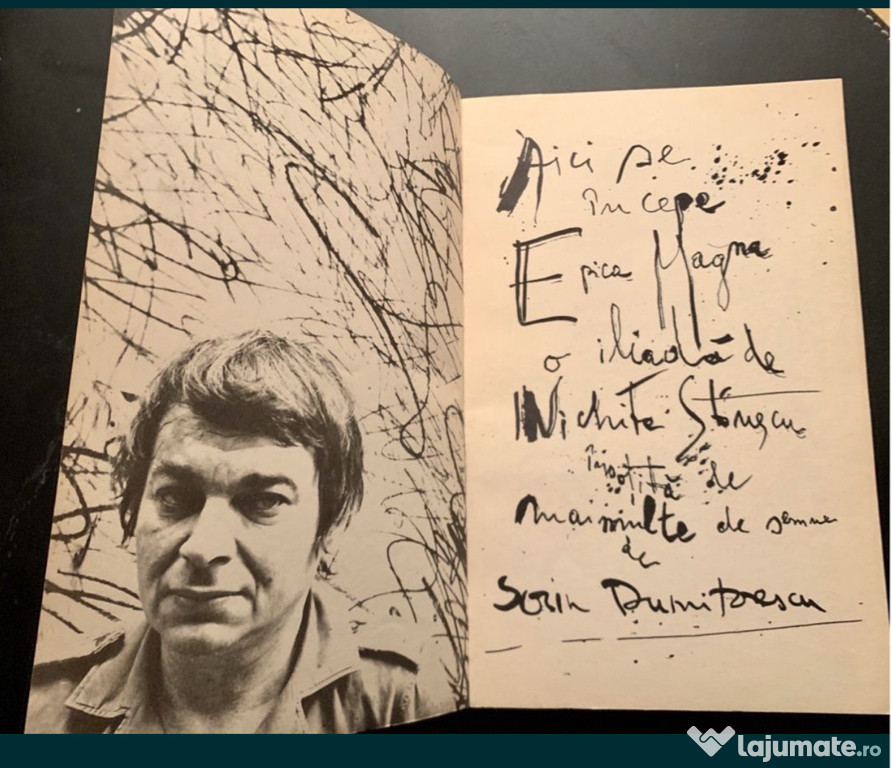 Aici se
începe
Epica Magna
o iliadă de
Nichita Stănescu
însoțită de
mai multe de semne
de
Sorin Dumitrescu
lajumate.ro